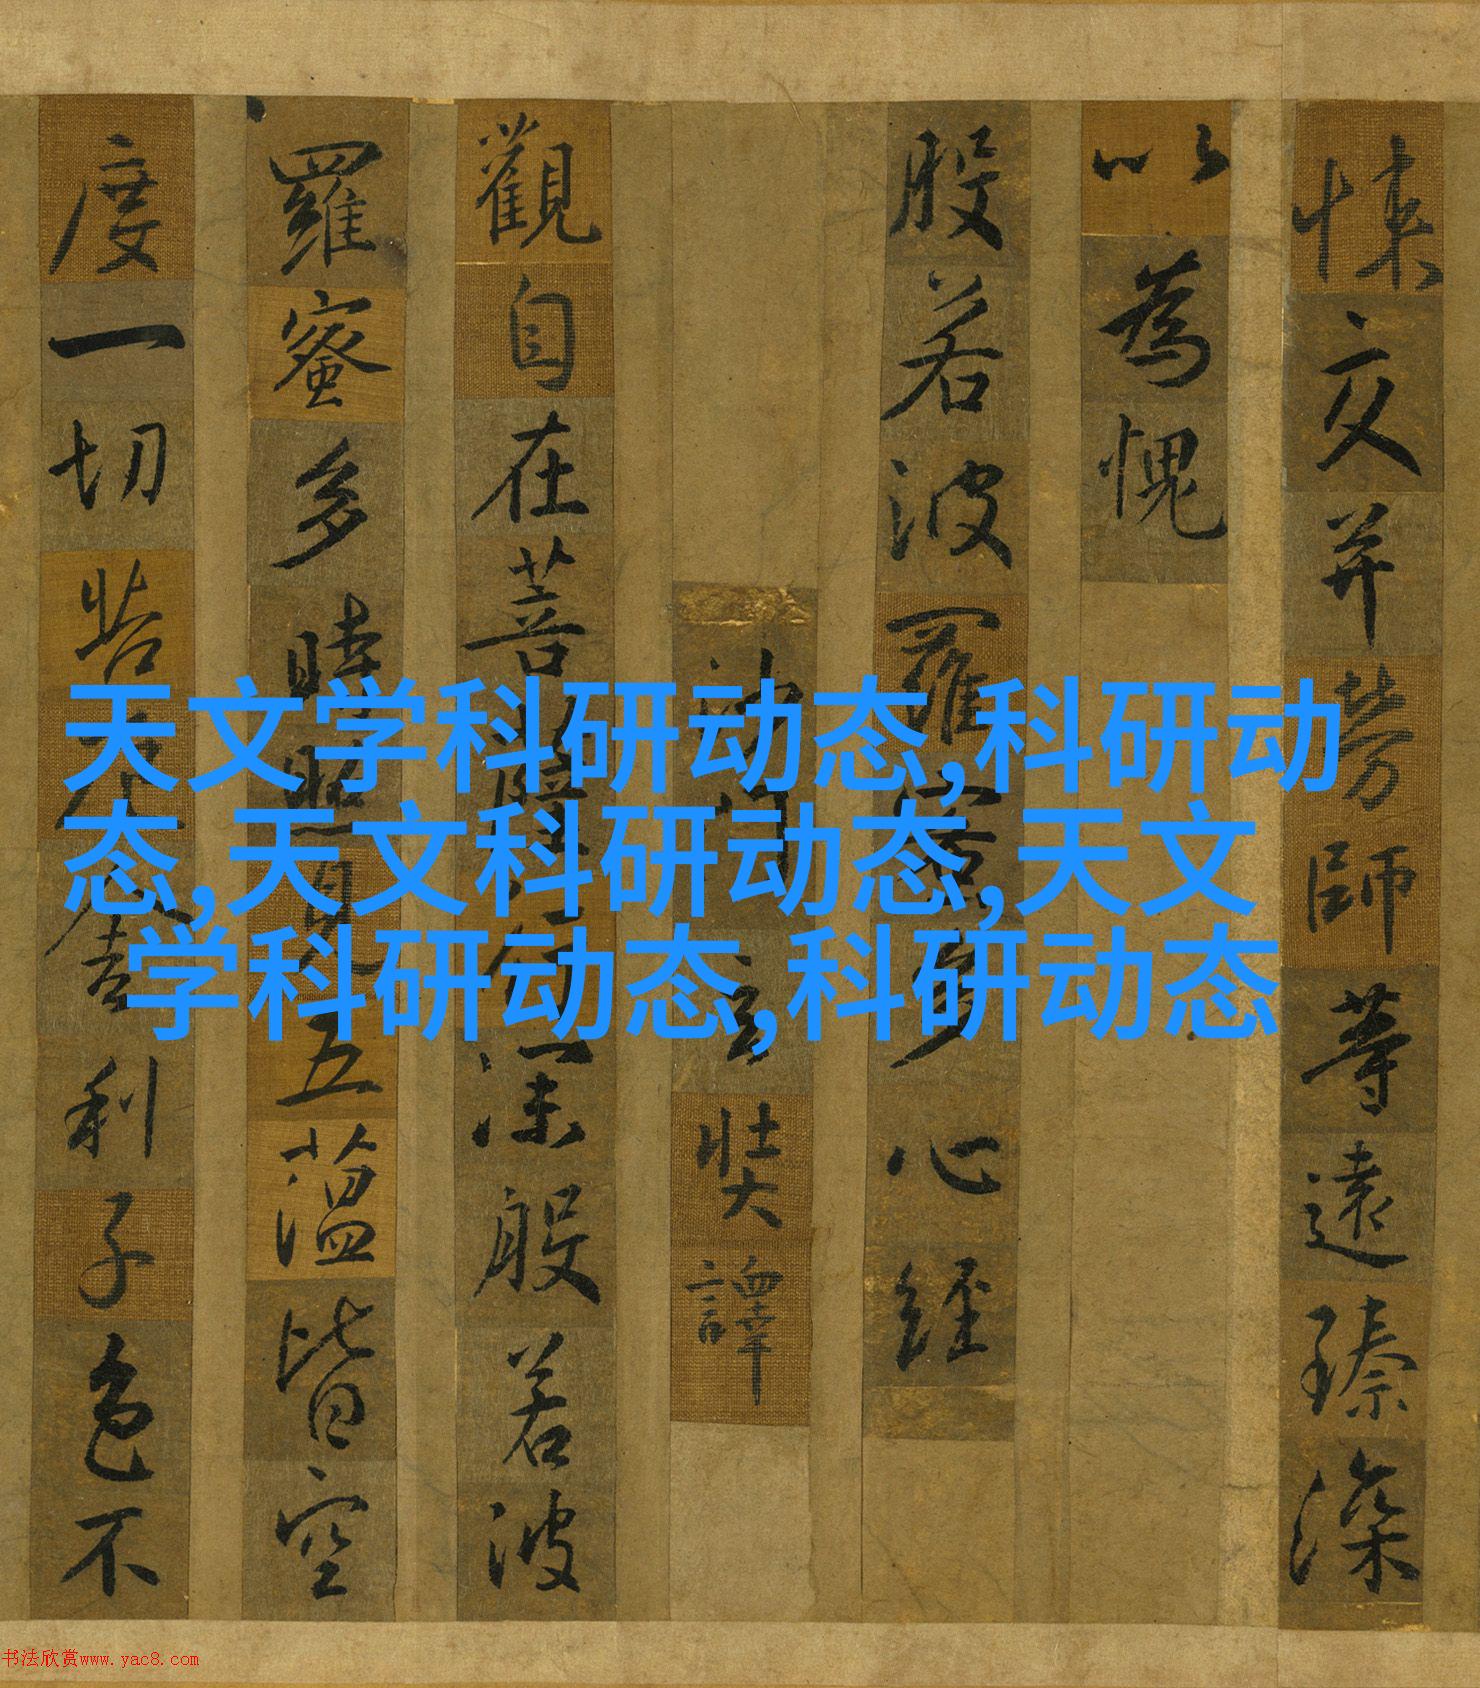 悚交并勞師等遠臻深
以為愧
般若波羅蜜多心經
沙門玄奘譯
觀自在菩薩行深般若波
羅蜜多時照見五蘊皆空
度一切苦厄舍利子色不
天文学科研动态,科研动
态,天文科研动态,天文
学科研动态,科研动态
书法欣赏www.yac8.com